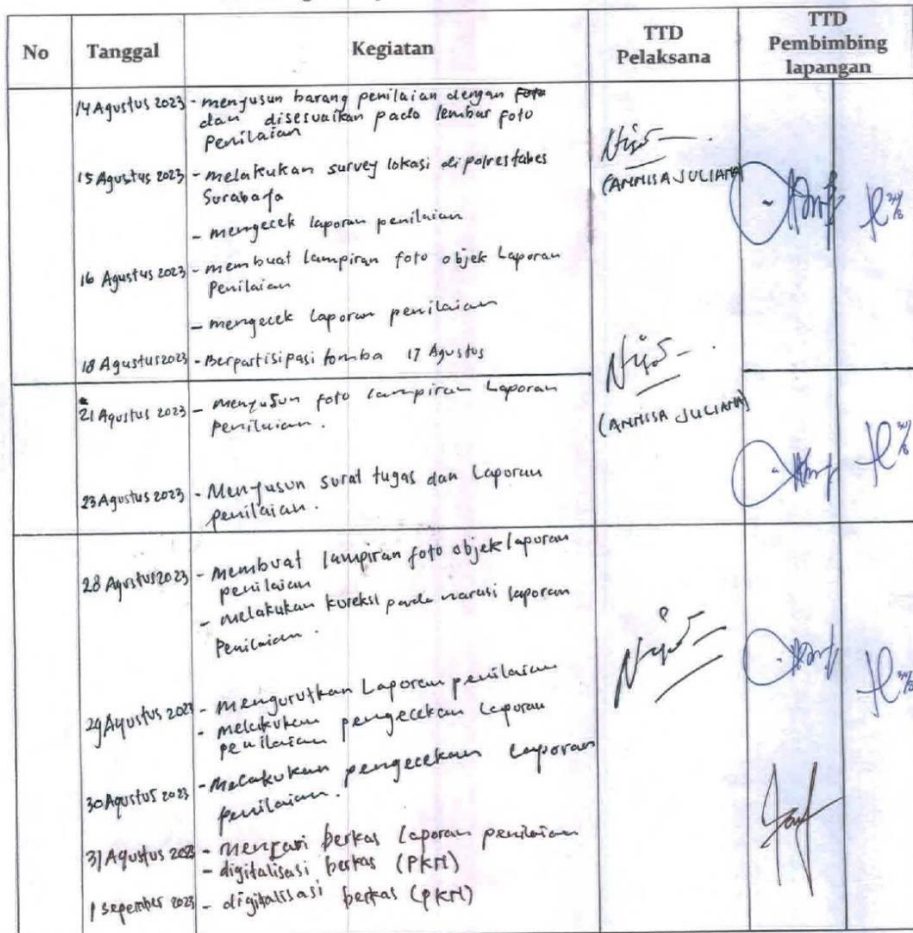 No Tanggal Kegiatan TTD Pelaksana TTD Pembimbing lapangan
14 Agustus 2023 - menyusun barang penilaian dengan foto
dan disesuaikan pada lembar foto
Penilaian
15 Agustus 2023 - melakukan survey lokasi di polrestabes
Surabaya
- mengecek laporan penilaian
16 Agustus 2023 - membuat lampiran foto objek Laporan
Penilaian
- mengecek laporan penilaian
(ANNISA JULIANA)
18 Agustus 2023 - Berpartisipasi lomba 17 Agustus
21 Agustus 2023 - menyusun foto lampiran Laporan
penilaian.
(ANNISA JULIANA)
23 Agustus 2023 - Menyusun surat tugas dan Laporan
penilaian.
28 Agustus 2023 - Membuat lampiran foto objek laporan
penilaian
- melakukan koreksi pada narasi laporan
Penilaian.
29 Agustus 2023 - Mengurutkan Laporan penilaian
- melakukan pengecekan Laporan
penilaian
30 Agustus 2023 - Melakukan pengecekan Laporan
penilaian.
31 Agustus 2023 - mencari berkas Laporan penilaian
- digitalisasi berkas (PKN)
1 sepember 2023 - digitalisasi berkas (PKN)